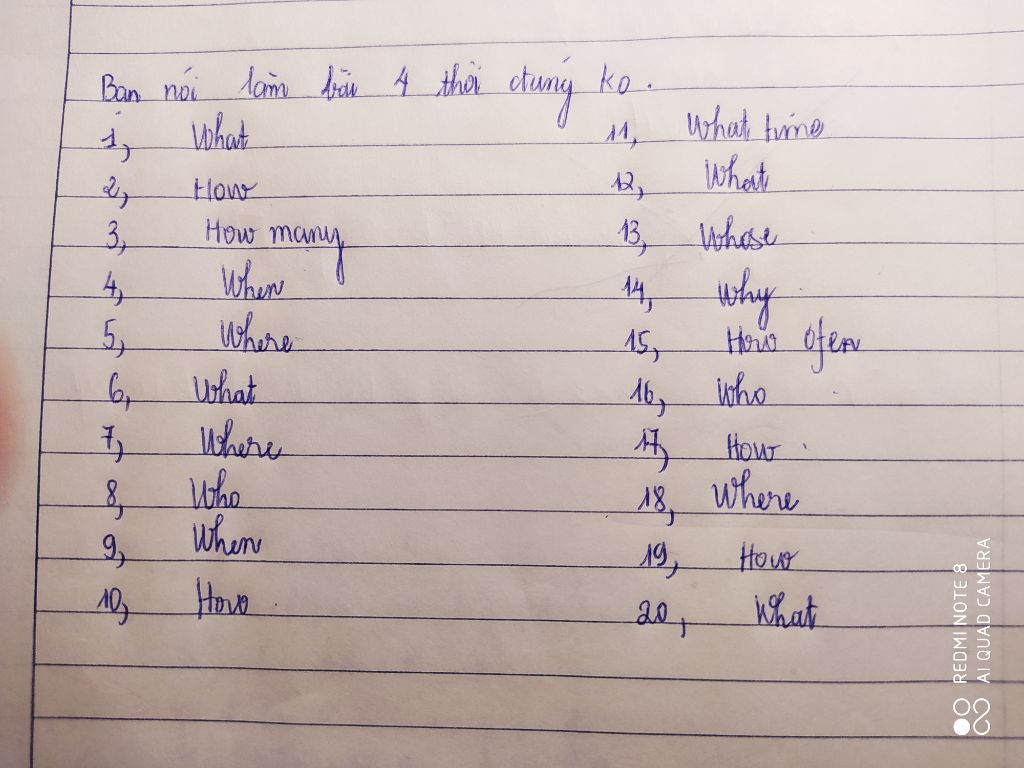 Bạn nói làm bài 4 thôi đúng ko.
1, What
2, How
3, How many
4, When
5, Where
6, What
7, Where
8, Who
9, When
10, How
11, What time
12, What
13, Whose
14, Why
15, How Ofen
16, Who
17, How
18, Where
19, How
20, What
REDMI NOTE 8
AI QUAD CAMERA